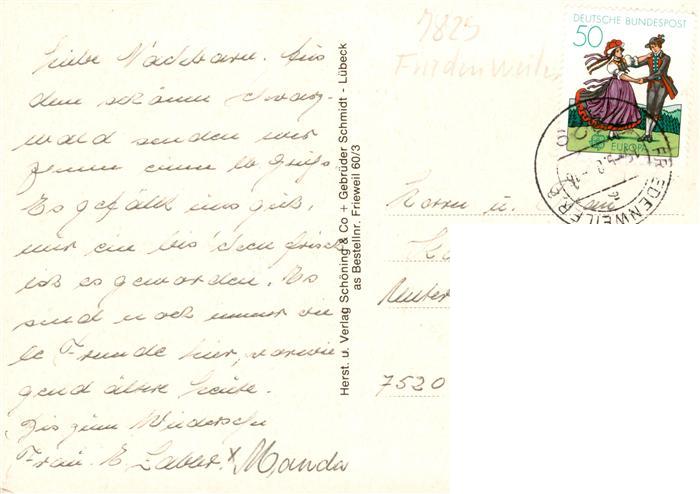 Liebe Nachbarn. Aus
dem schönen Schwarz-
wald senden wir
Ihnen einen lb Grüße
Es gefällt uns gut,
nur ein bis'chen frisch
ist es geworden. Es
sind noch immer vie
le Fremde hier, vorwie
gend ältere Leute.
Bis zum Wiedersehn
Frau E.
Herst. u. Verlag Schöning & Co + Gebrüder Schmidt - Lübeck
as Bestellnr. Frieweil 60/3
7825
Friedenweiler
DEUTSCHE BUNDESPOST
50
EUROPA
FRIEDENWEILER
Herrn u.
7520